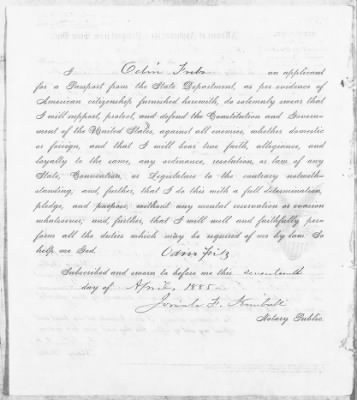 I Odin Fritz an applicant
for a Passport from the State Department, as per evidence of
American citizenship furnished herewith, do solemnly swear that
I will support, protect, and defend the Constitution and Govern-
ment of the United States, against all enemies, whether domestic
or foreign, and that I will bear true faith, allegiance, and
loyalty to the same, any ordinance, resolution, or law of any
State, Convention, or Legislature to the contrary notwith-
standing; and, further, that I do this with a full determination,
pledge, and purpose, without any mental reservation or evasion
whatsoever; and, further, that I will well and faithfully per-
form all the duties which may be required of me by law. So
help me God.
Odin Fritz
Subscribed and sworn to before me this seventeenth
day of April, 1885.
Josiah F. Kimball
Notary Public.